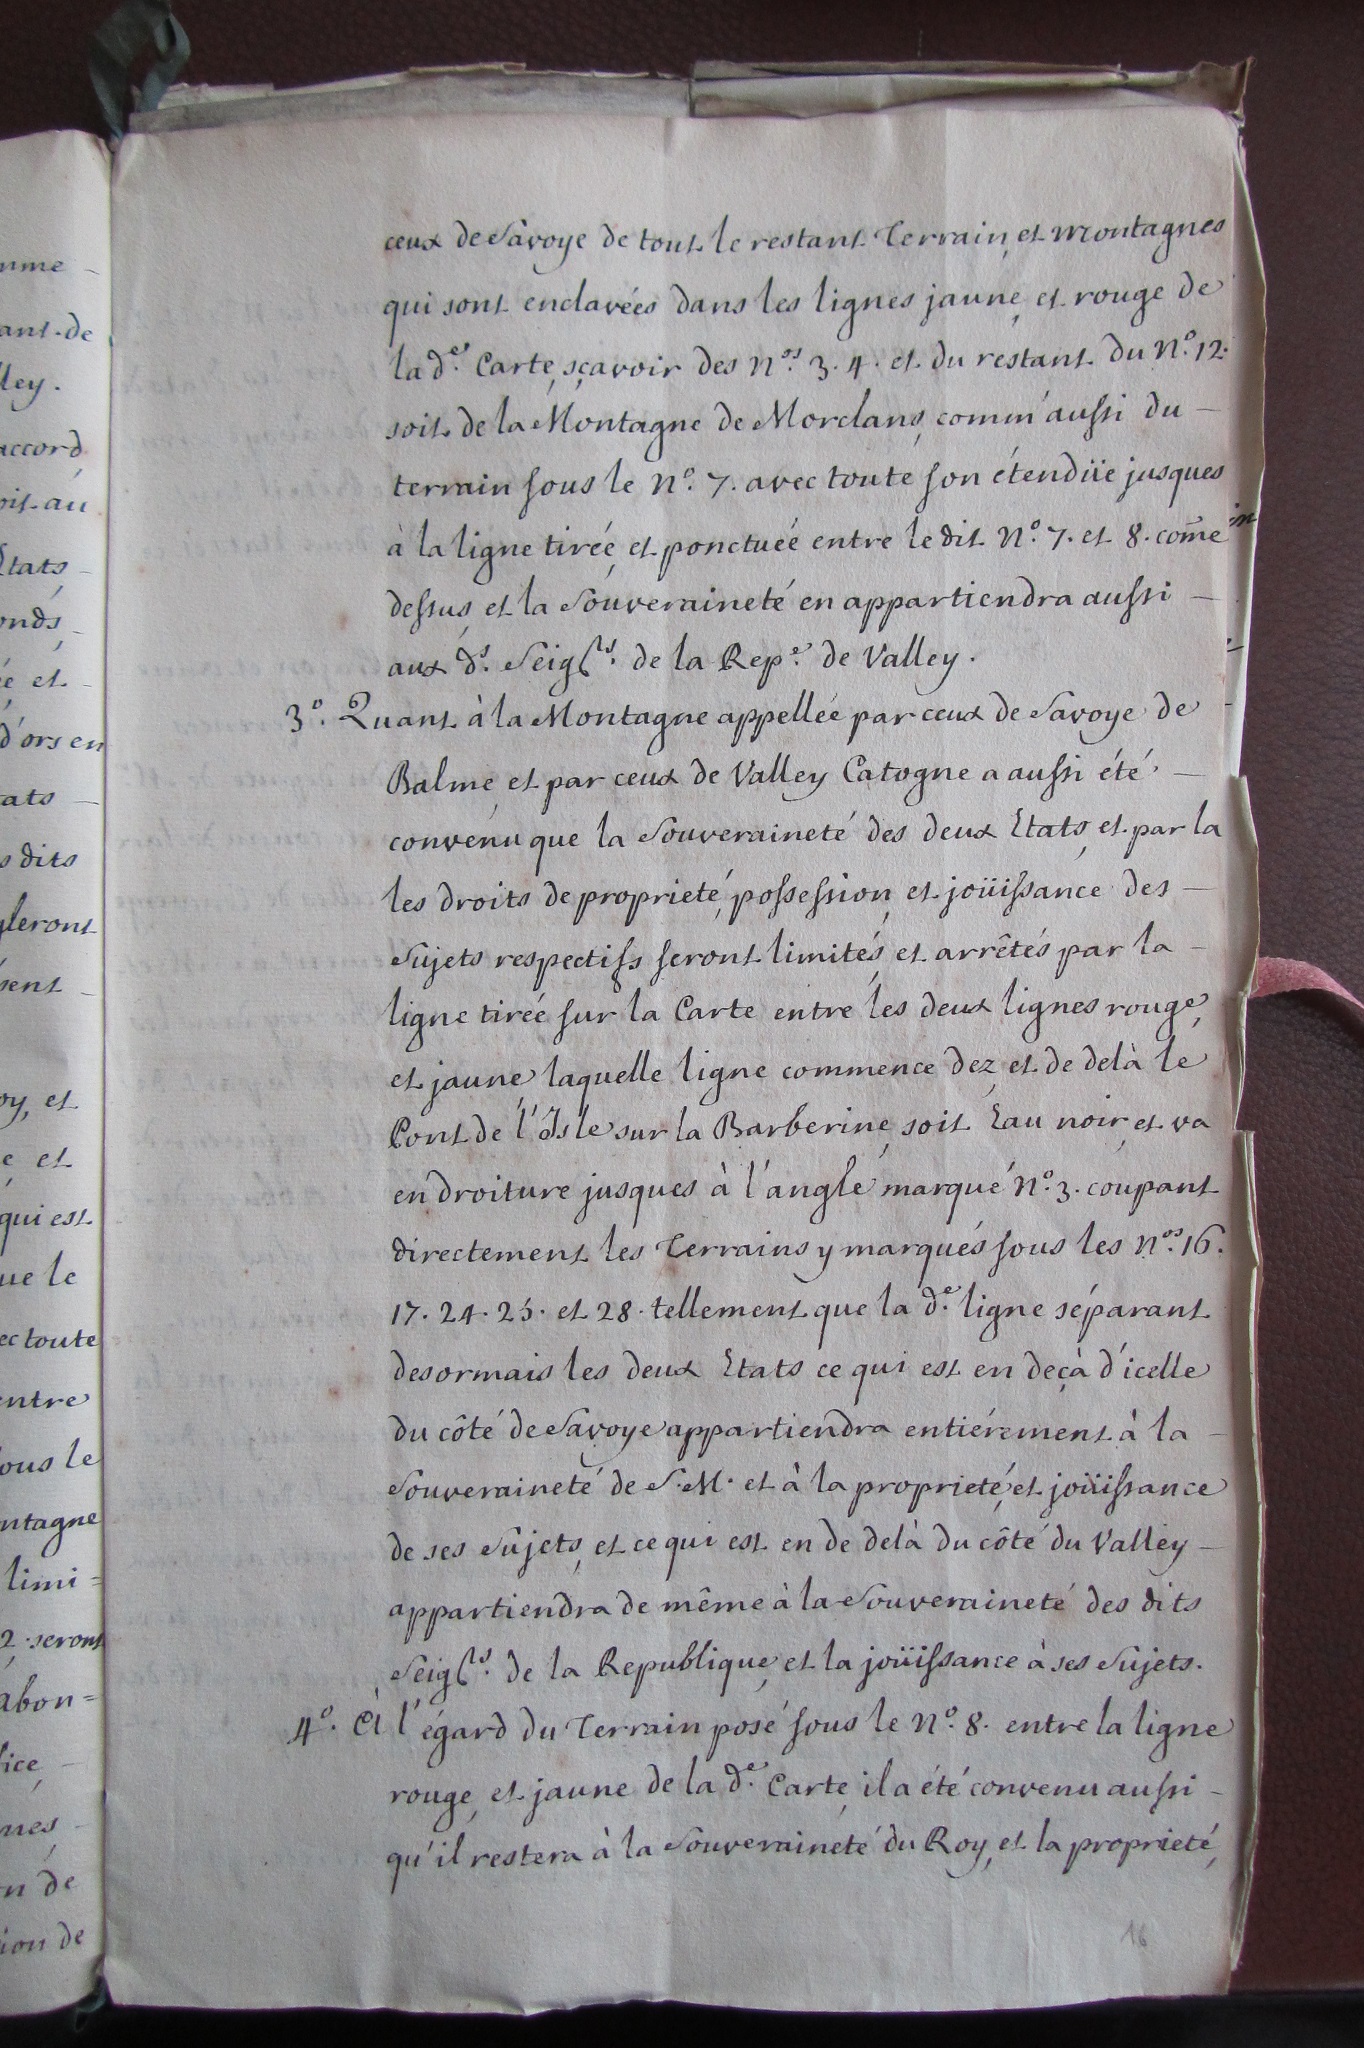 ceux de Savoye de tout le restant Terrain, et Montagnes
qui sont enclavées dans les lignes jaune, et rouge de
la d.e Carte, sçavoir des N.os 3. 4. et du restant du N.o 12.
soit de la Montagne de Morclans, comm'aussi du –
terrain sous le N.o 7. avec toute son étendüe jusques
à la ligne tirée, et ponctuée entre le dit N.o 7. et 8. com̄e
dessus, et la Souveraineté en appartiendra aussi –
aux d.s Seig.rs de la Rep.e de Valley.
3.o Quant à la Montagne appellée par ceux de Savoye de
Balme, et par ceux de Valley Catogne a aussi été –
convenu que la Souveraineté des deux Etats, et par la
les droits de proprieté, possession, et joüissance des –
Sujets respectifs seront limités, et arrêtés par la –
ligne tirée sur la Carte entre les deux lignes rouge,
et jaune laquelle ligne commence dez, et de delà le
Pont de l'Isle sur la Barberine, soit Eau noir, et va
en droiture jusques à l'angle marqué N.o 3. coupant
directement les Terrains y marqués sous les N.os 16.
17. 24. 25. et 28. tellement que la d.e ligne séparant
desormais les deux Etats ce qui est en deçà d'icelle
du côté de Savoye appartiendra entiérement à la –
Souveraineté de S. M. et à la proprieté, et joüissance
de ses Sujets, et ce qui est en de delà du côté du Valley –
appartiendra de même à la Souveraineté des dits
Seig.rs de la Republique, et la joüissance à ses Sujets.
4.o A l'égard du Terrain posé sous le N.o 8. entre la ligne
rouge, et jaune de la d.e Carte, il a été convenu aussi –
qu'il restera à la Souveraineté du Roy, et la proprieté,
16